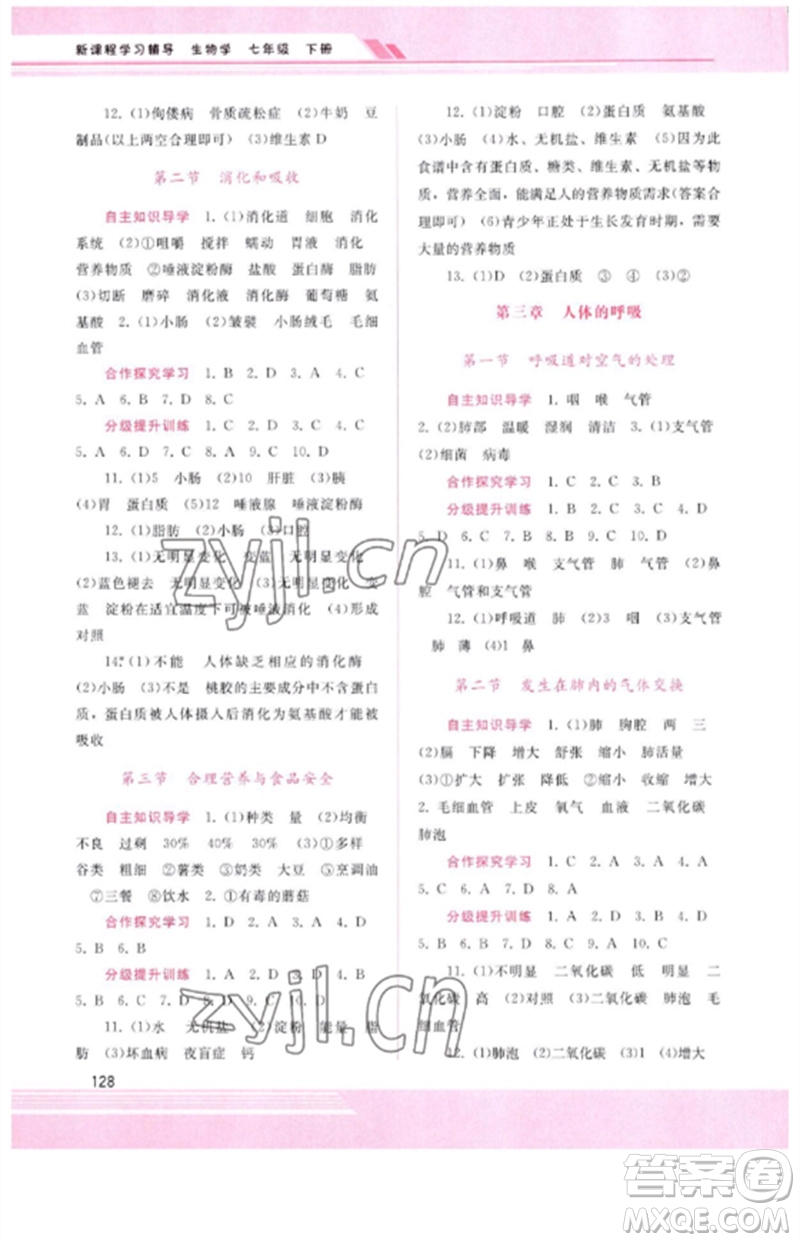 新课程学习辅导 生物学 七年级 下册
12. (1)佝偻病 骨质疏松症 (2)牛奶 豆
制品(以上两空合理即可) (3)维生素 D
第二节 消化和吸收
自主知识导学 1. (1)消化道 细胞 消化
系统 (2)①咀嚼 搅拌 蠕动 胃液 消化
营养物质 ②唾液淀粉酶 盐酸 蛋白酶 脂肪
(3)切断 磨碎 消化液 消化液 葡萄糖 氨
基酸 2. (1)小肠 (2)皱襞 小肠绒毛 毛细
血管
合作探究学习 1. B 2. D 3. A 4. C
5. A 6. B 7. D 8. C
分级提升训练 1. C 2. D 3. C 4. C
5. A 6. D 7. C 8. D 9. C 10. D
11. (1)5 小肠 (2)10 肝脏 (3)胰
(4)胃 蛋白质 (5)12 唾液腺 唾液淀粉酶
12. (1)脂肪 (2)小肠 (3)口腔
13. (1)无明显变化 变蓝 无明显变化
(2)蓝色褪去 无明显变化 (3)无明显变化 变
蓝 淀粉在适宜温度下可被唾液消化 (4)形成
对照
14. (1)不能 人体缺乏相应的消化酶
(2)小肠 (3)不是 桃胶的主要成分中不含蛋白
质,蛋白质被人体摄入后消化为氨基酸才能被
吸收
第三节 合理营养与食品安全
自主知识导学 1. (1)种类 量 (2)均衡
不良 过剩 30% 40% 30% (3)①多样
谷类 粗细 ②薯类 ③奶类 大豆 ⑤烹调油
⑦三餐 ⑧饮水 2. (1)有毒的蘑菇
合作探究学习 1. D 2. D 3. A 4. A
5. B 6. B
分级提升训练 1. A 2. D 3. D 4. D
5. B 6. C 7. B 8. A 9. B 10. D
11. (1)水 无机盐 (2)淀粉 能量 脂
肪 (3)坏血病 夜盲症 钙
128
12. (1)淀粉 口腔 (2)蛋白质 氨基酸
(3)小肠 (4)水、无机盐、维生素 (5)因为此
食谱中含有蛋白质、糖类、维生素、无机盐等物
质,营养全面,能满足人的营养物质需求(答案合
理即可) (6)青少年正处于生长发育时期,需要
大量的营养物质
13. (1)D (2)蛋白质 ③ ④ (3)②
第三章 人体的呼吸
第一节 呼吸道对空气的处理
自主知识导学 1. 咽 喉 气管
2. (1)支气管 (2)肺部 温暖 湿润 清洁 3. (1)支气管
(2)细菌 病毒
合作探究学习 1. C 2. C 3. B
分级提升训练 1. C 2. C 3. C 4. D
5. D 6. C 7. B 8. B 9. A 10. D
11. (1)鼻 喉 支气管 肺 气管 (2)鼻
腔 气管和支气管
12. (1)呼吸道 肺 (2)3 咽 (3)支气管
肺 薄 (4)1 鼻
第二节 发生在肺内的气体交换
自主知识导学 1. (1)肺 胸腔 两 三
(2)膈 下降 增大 舒张 缩小 肺活量
(3)①扩大 扩张 扩大 ②缩小 收缩 增大
2. 毛细血管 上皮 氧气 血液 二氧化碳
肺泡
合作探究学习 1. C 2. A 3. B 4. A
5. C 6. A 7. D 8. A
分级提升训练 1. B 2. A 3. D 4. D
5. C 6. B 7. B 8. B 9. A 10. C
11. (1)不明显 二氧化碳 低 明显 二
氧化碳 高 (2)对照 (3)二氧化碳 肺泡 毛
细血管
12. (1)肺泡 (2)二氧化碳 (3)1 (4)增大
zyjl.cn
zyjl.cn
答案圈
MXQE.COM